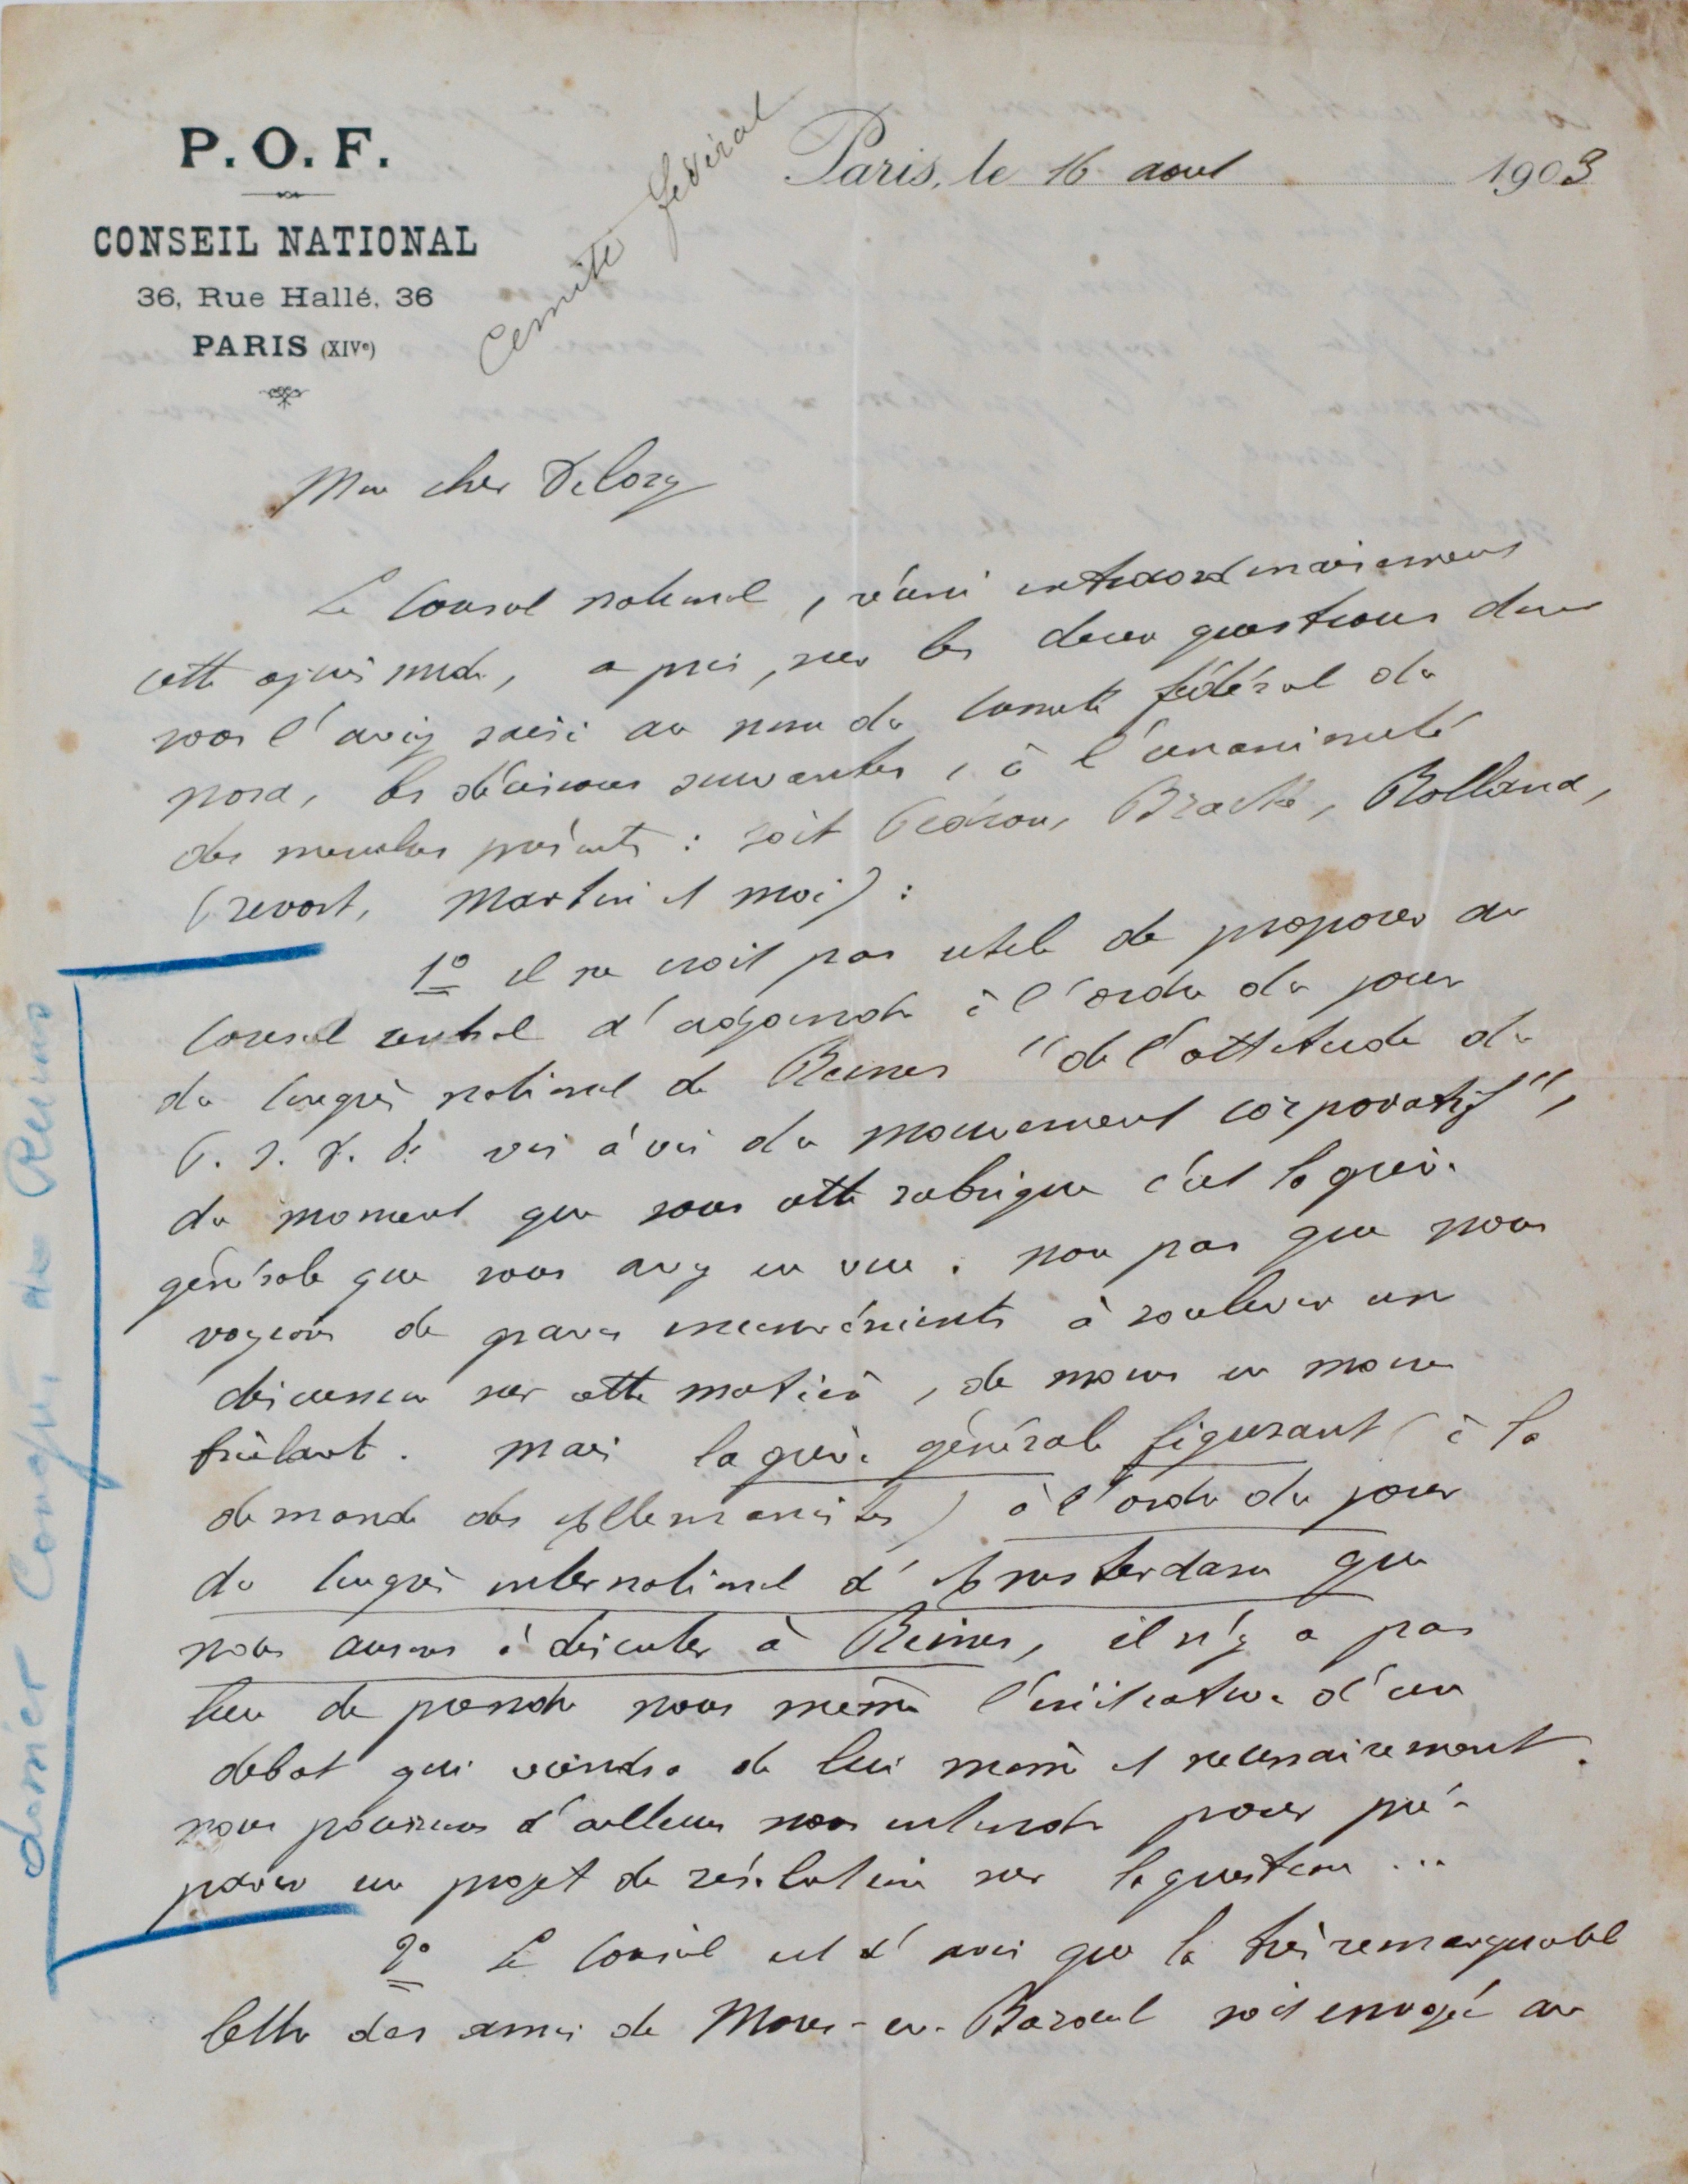 P. O. F.
CONSEIL NATIONAL
36, Rue Hallé, 36
PARIS (XIVe)
Comité fédéral
Paris, le 16 aout 1903
Mon cher Delory
Le Conseil national, réuni extraordinairement
cette après midi, a pris, sur les deux questions dont
vous l'avez saisi au nom du Comité fédéral du
nord, les décisions suivantes, à l'unanimité
des membres présents : soit Pédron, Bracke, Rolland,
Prevost, Martin et moi) :
1o il ne croit pas utile de proposer au
Conseil central d'adjoindre à l'ordre du jour
du Congrès national de Reims "de l'attitude du
P. S. d. F. vis à vis du mouvement corporatif",
du moment que sous cette rubrique c'est la grève
générale que vous avez en vue. non pas que nous
voyions de graves inconvénients à soulever une
discussion sur cette matière, de moins en moins
brûlante. mais la grève générale figurant (à la
demande des Allemanistes) à l'ordre du jour
du Congrès international d'Amsterdam que
nous aurons à discuter à Reims, il n'y a pas
lieu de prendre nous même l'initiative d'un
debat qui viendra de lui même et necessairement.
nous pourrons d'ailleurs nous entendre pour pré-
parer un projet de résolution sur la question ...
2o Le Conseil est d'avis que la très remarquable
lettre des amis de Mons-en-Baroeul soit envoyée au
dossier Congrès de Reims